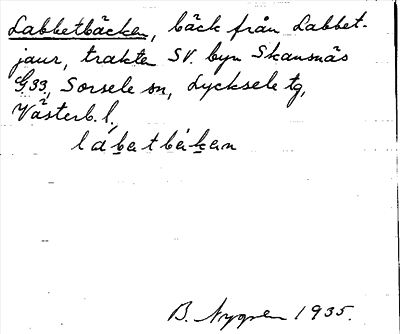 Labbetbäcken, bäck från Labbet-
jaur, trakten SV. byn Skansnäs
G33, Sorsele sn, Lycksele tg,
Västerb. l.
lábatbékan
B. Nygren 1935.